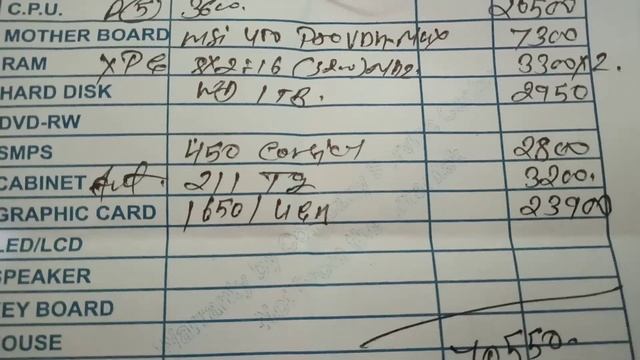 C.P.U. R(5) 3600 20500
MOTHER BOARD msi 450 Pro VDH Max 7300
RAM XPG 8x2=16 (3200) 3300x2.
HARD DISK WD 1TB. 2950
DVD-RW
SMPS 450 2800
CABINET 211 TG 3200.
GRAPHIC CARD 1650 / 4GB 23900
LED/LCD
SPEAKER
KEY BOARD
OUSE 70550.